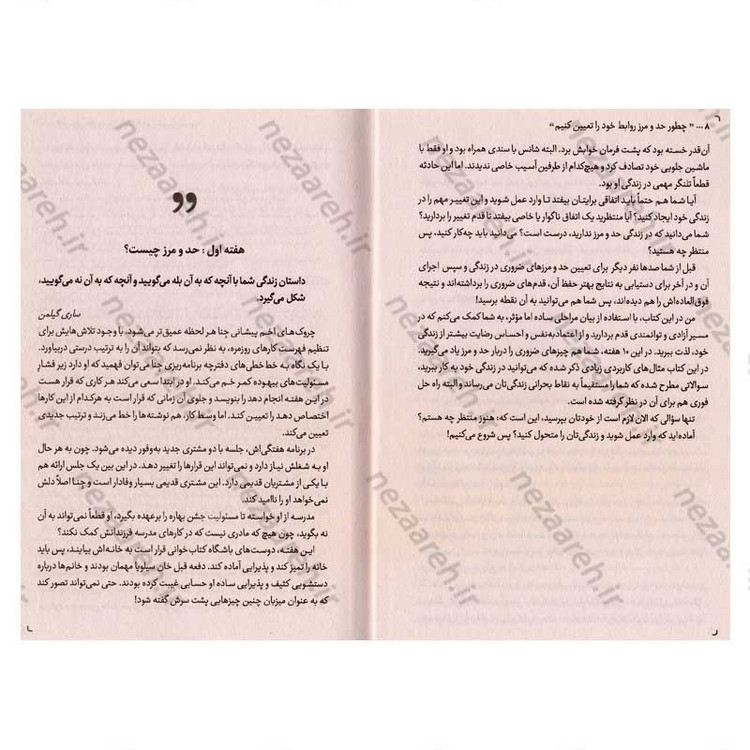 ۸ ... " چطور حد و مرز روابط خود را تعیین کنیم "
آن‌قدر خسته بود که پشت فرمان خوابش برد. البته شانس با سندی همراه بود و او فقط با
ماشین جلویی خود تصادف کرد و هیچ‌کدام از طرفین آسیب خاصی ندیدند. اما این حادثه
قطعاً تلنگر مهمی در زندگی او بود.
آیا شما هم حتماً باید اتفاقی برایتان بیفتد تا وارد عمل شوید و این تغییر مهم را در
زندگی خود ایجاد کنید؟ آیا منتظرید یک اتفاق ناگوار یا خاصی بیفتد تا قدم تغییر را بردارید؟
شما می‌دانید که در زندگی حد و مرز ندارید، درست است؟ می‌دانید باید چه‌کار کنید، پس
منتظر چه هستید؟
قبل از شما صدها نفر دیگر برای تعیین حد و مرزهای ضروری در زندگی و سپس اجرای
آن و در آخر برای دستیابی به نتایج بهتر حفظ آن، قدم‌های ضروری را برداشته‌اند و نتیجه
فوق‌العاده‌اش را هم دیده‌اند، پس شما هم می‌توانید به آن نقطه برسید!
من در این کتاب، با استفاده از بیان مراحلی ساده اما مؤثر، به شما کمک می‌کنم که در
مسیر آزادی و توانمندی قدم بردارید و از اعتمادبه‌نفس و احساس رضایت بیشتر از زندگی
خود، لذت ببرید. در این ۱۰ هفته، شما هم چیزهای ضروری را دربار حد و مرز یاد می‌گیرید.
در این کتاب مثال‌های کاربردی زیادی ذکر شده که می‌توانید در زندگی خود به کار ببرید،
سوالاتی مطرح شده که شما را مستقیماً به نقاط بحرانی زندگی‌تان می‌رساند و البته راه حل
فوری هم برای آن در نظر گرفته شده است.
تنها سؤالی که الان لازم است از خودتان بپرسید، این است که: هنوز منتظر چه هستم؟
آماده‌اید که وارد عمل شوید و زندگی‌تان را متحول کنید؟ پس شروع می‌کنیم!
هفته اول : حد و مرز چیست؟
داستان زندگی شما با آنچه که به آن بله می‌گویید و آنچه که به آن نه می‌گویید،
شکل می‌گیرد.
ساری گیلمن
چروک‌های اخم پیشانی چنا هر لحظه عمیق‌تر می‌شود. با وجود تلاش‌هایش برای
تنظیم فهرست کارهای روزمره، به نظر نمی‌رسد که بتواند آن را به ترتیب درستی دربیاورد.
با یک نگاه به خط‌خطی‌های دفترچه برنامه‌ریزی چنا می‌توان فهمید که او دارد زیر فشار
مسئولیت‌های بیهوده کمر خم می‌کند. او در ابتدا سعی می‌کند هر کاری که قرار هست
در این هفته انجام دهد را بنویسد و جلوی آن زمانی که قرار است به هرکدام از این کارها
اختصاص دهد را تعیین کند. اما وسط کار، هم نوشته‌ها را خط می‌زند و ترتیب جدیدی
تعیین می‌کند.
در برنامه هفتگی‌اش، جلسه با دو مشتری جدید به‌وفور دیده می‌شود. چون به هر حال
او به شغلش نیاز دارد و نمی‌تواند این قرارها را تغییر دهد. در این بین یک جلس ارائه هم
با یکی از مشتریان قدیمی دارد. این مشتری قدیمی بسیار وفادار است و چنا اصلاً دلش
نمی‌خواهد او را ناامید کند.
مدرسه از او خواسته تا مسئولیت جشن بهاره را برعهده بگیرد، او قطعاً نمی‌تواند به آن
نه بگوید، چون هیچ که مادری نیست که در کارهای مدرسه فرزندانش کمک نکند؟
این هفته، دوست‌های باشگاه کتاب‌خوانی قرار است به خانه‌اش بیایند، پس باید
خانه را تمیز کند و پذیرایی آماده کند. دفعه قبل خان سیلویا مهمان بودند و خانم‌ها درباره
دستشویی کثیف و پذیرایی ساده او حسابی غیبت کرده بودند. حتی نمی‌تواند تصور کند
که به عنوان میزبان چنین چیزهایی پشت سرش گفته شود!
nezaareh.ir
nezaareh.ir
nezaareh.ir
nezaareh.ir
nezaareh.ir
nezaareh.ir
nezaareh.ir
nezaareh.ir